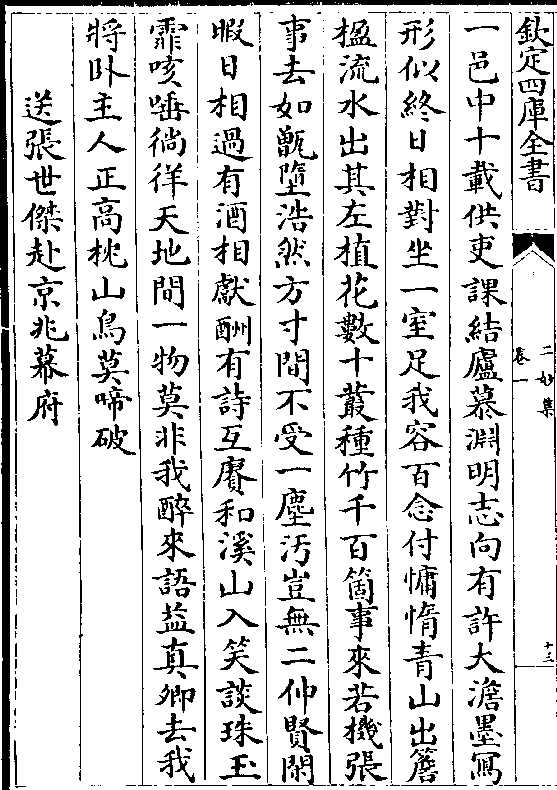 欽定四庫全書
二妙集
卷一
十三
一邑中十載供吏課結廬慕淵明志向有許大澹墨寫
形似終日相對坐一室足我容百念付慵惰青山出簷
楹流水出其左植花數十叢種竹千百箇事來若機張
事去如甑墮浩然方寸間不受一塵汚豈無二仲賢閑
暇日相過有酒相獻酬有詩互賡和溪山入笑談珠玉
霏咳唾徜徉天地間一物莫非我醉來語益真卿去我
將卧主人正高枕山鳥莫啼破
送張世傑赴京兆幕府